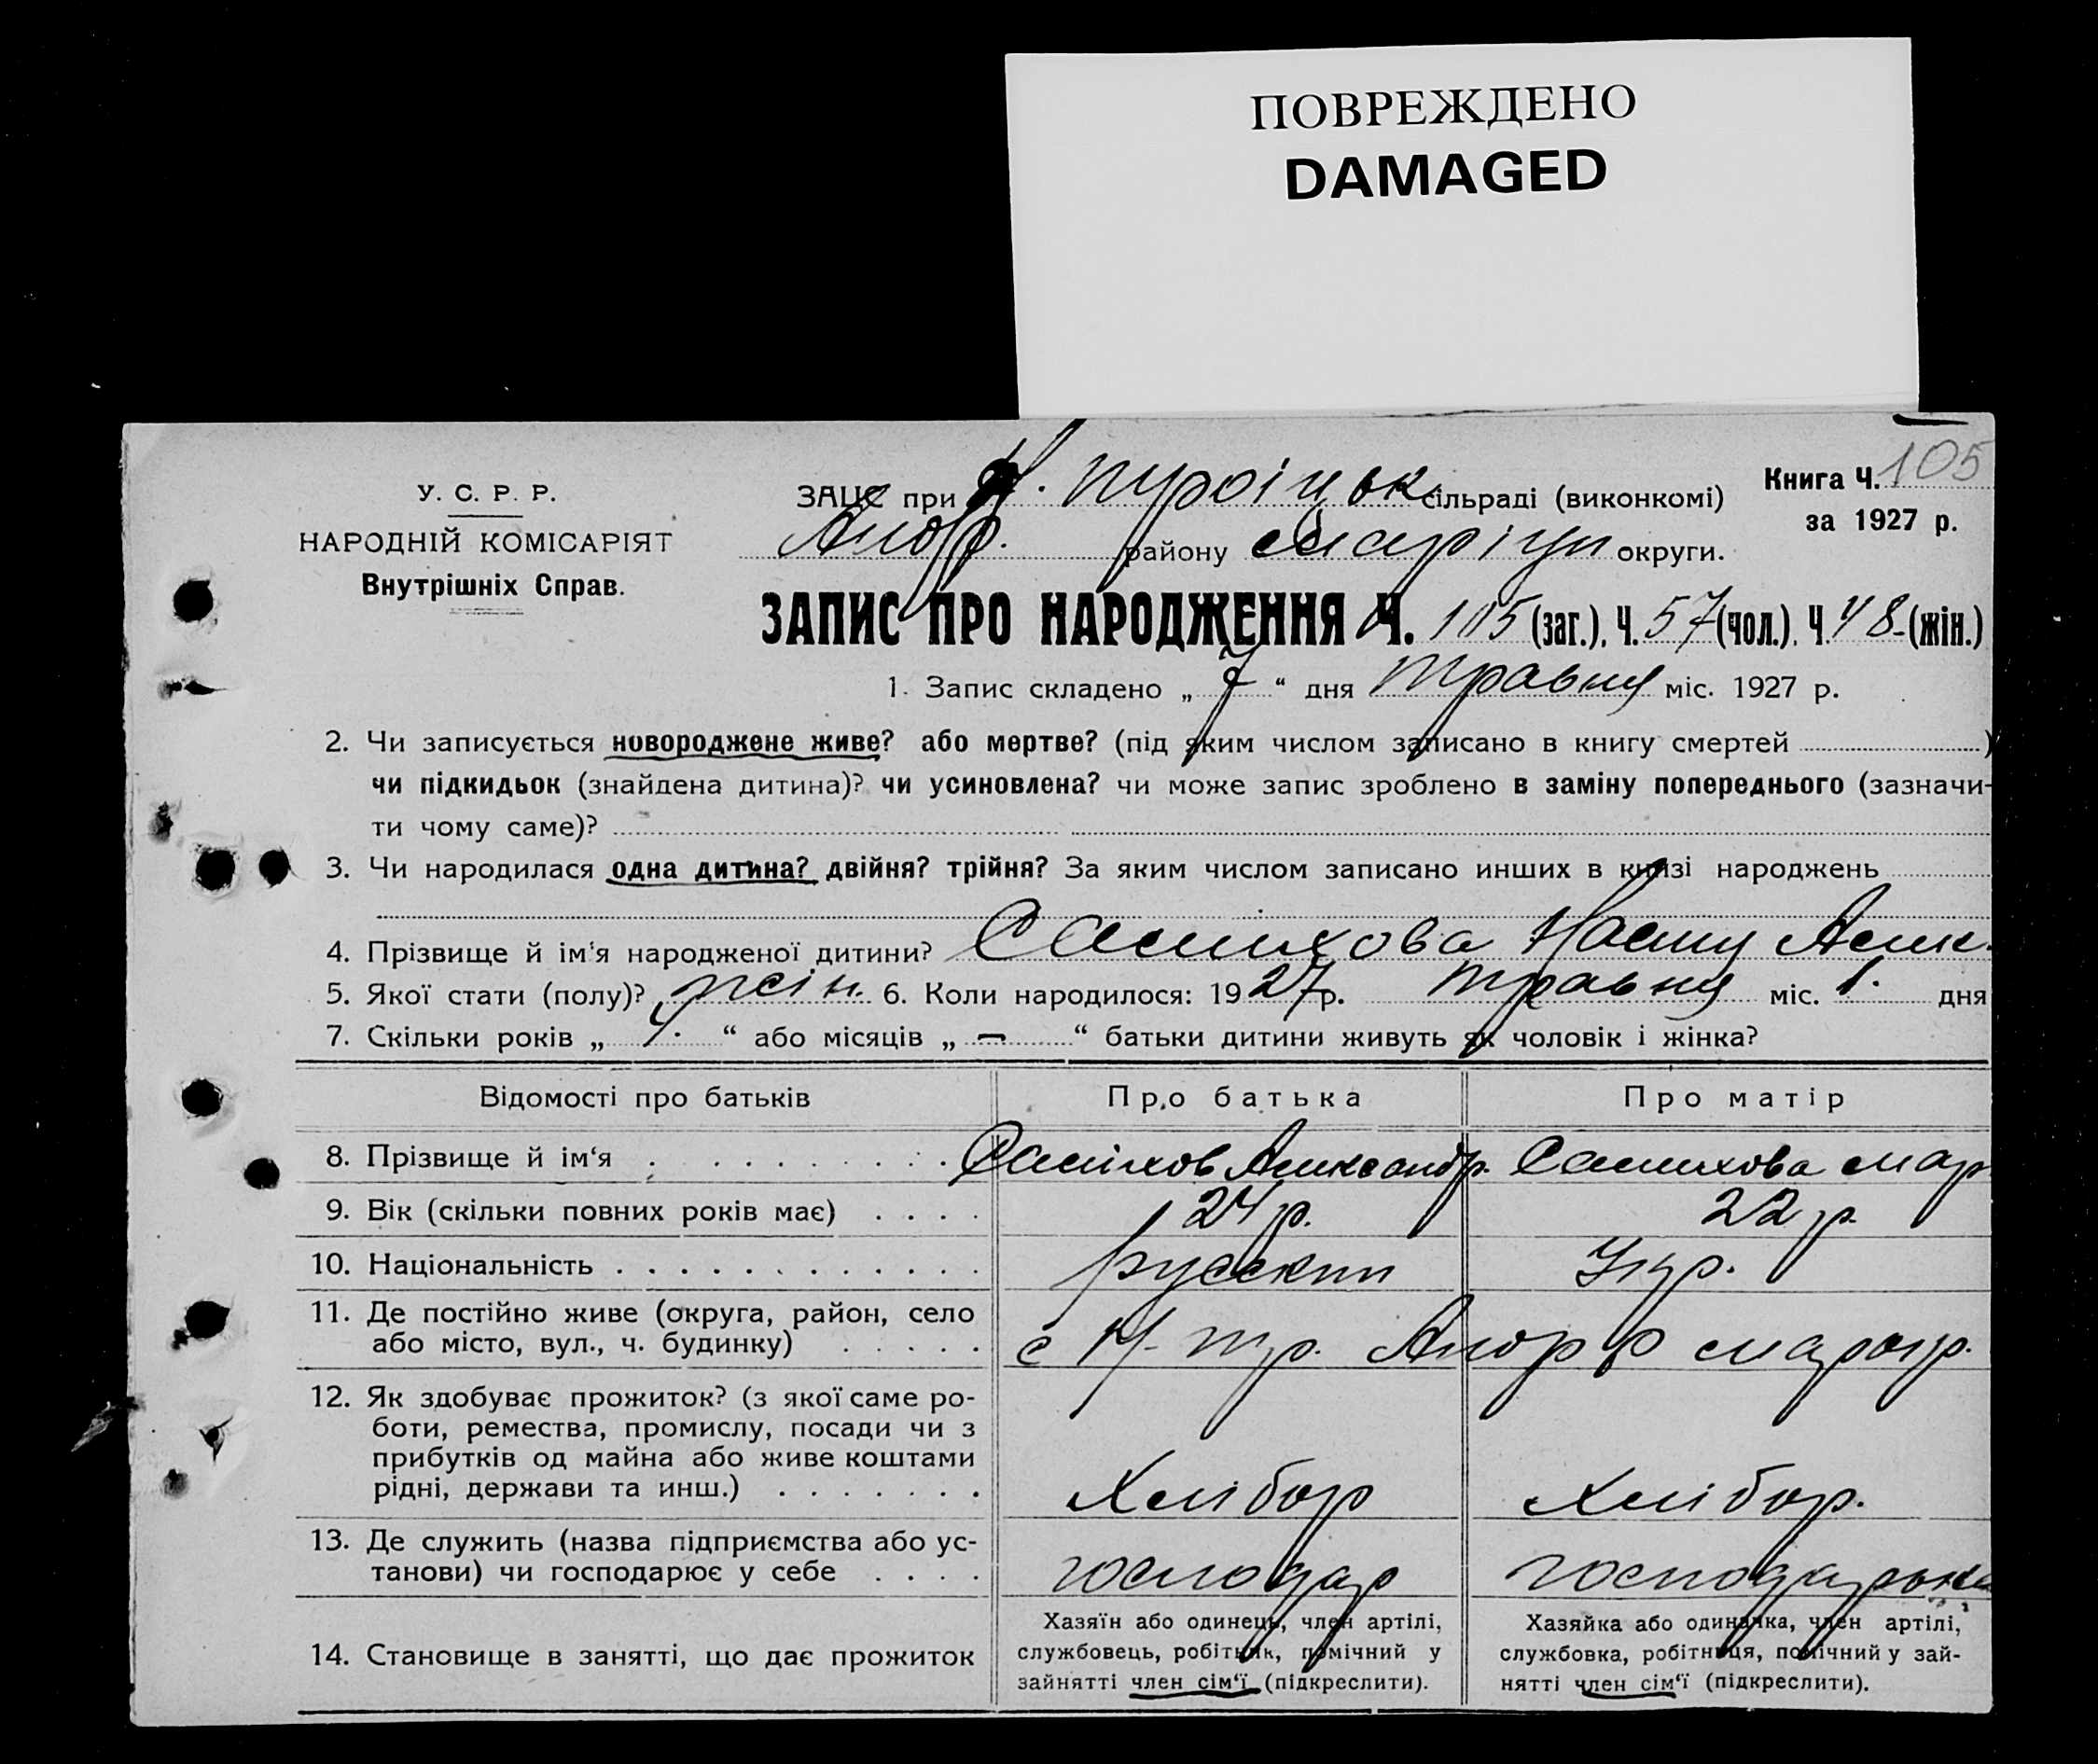 ПОВРЕЖДЕНО
DAMAGED
У. С. Р. Р.
НАРОДНІЙ КОМІСАРІЯТ
Внутрішніх Справ.
ЗАЦС при Н. Троїцьк. сільраді (виконкомі)
району Маріуп округи.
Книга Ч. 105
за 1927 р.
ЗАПИС ПРО НАРОДЖЕННЯ Ч. 105 (заг.), Ч. 57 (чол.), Ч. 48 (жін.)
1. Запис складено „ 7 “ дня Травня міс. 1927 р.
2. Чи записується новороджене живе? або мертве? (під яким числом записано в книгу смертей )
чи підкидьок (знайдена дитина)? чи усиновлена? чи може запис зроблено в заміну попереднього (зазначи-
ти чому саме)?
3. Чи народилася одна дитина? двійня? трійня? За яким числом записано инших в книзі народжень
4. Прізвище й ім‘я народженої дитини?
5. Якої стати (полу)? жін. 6. Коли народилося: 1927 р. Травня міс. 1. дня
7. Скільки років „ “ або місяців „ — “ батьки дитини живуть як чоловік і жінка?
Відомості про батьків Про батька Про матір
8. Прізвище й ім‘я Александр.
9. Вік (скільки повних років має) 24 р. 22 р.
10. Національність русский Укр.
11. Де постійно живе (округа, район, село
або місто, вул., ч. будинку) с Н. Тр.
12. Як здобуває прожиток? (з якої саме ро-
боти, ремества, промислу, посади чи з
прибутків од майна або живе коштами
рідні, держави та инш.) Хлібор Хлібор.
13. Де служить (назва підприємства або ус-
танови) чи господарює у себе господар господарька
14. Становище в занятті, що дає прожиток
Хазяїн або одинець, член артілі,
службовець, робітник, помічний у
зайнятті член сім‘ї (підкреслити).
Хазяйка або одиначка, член артілі,
службовка, робітниця, помічний у зай-
нятті член сім‘ї (підкреслити).